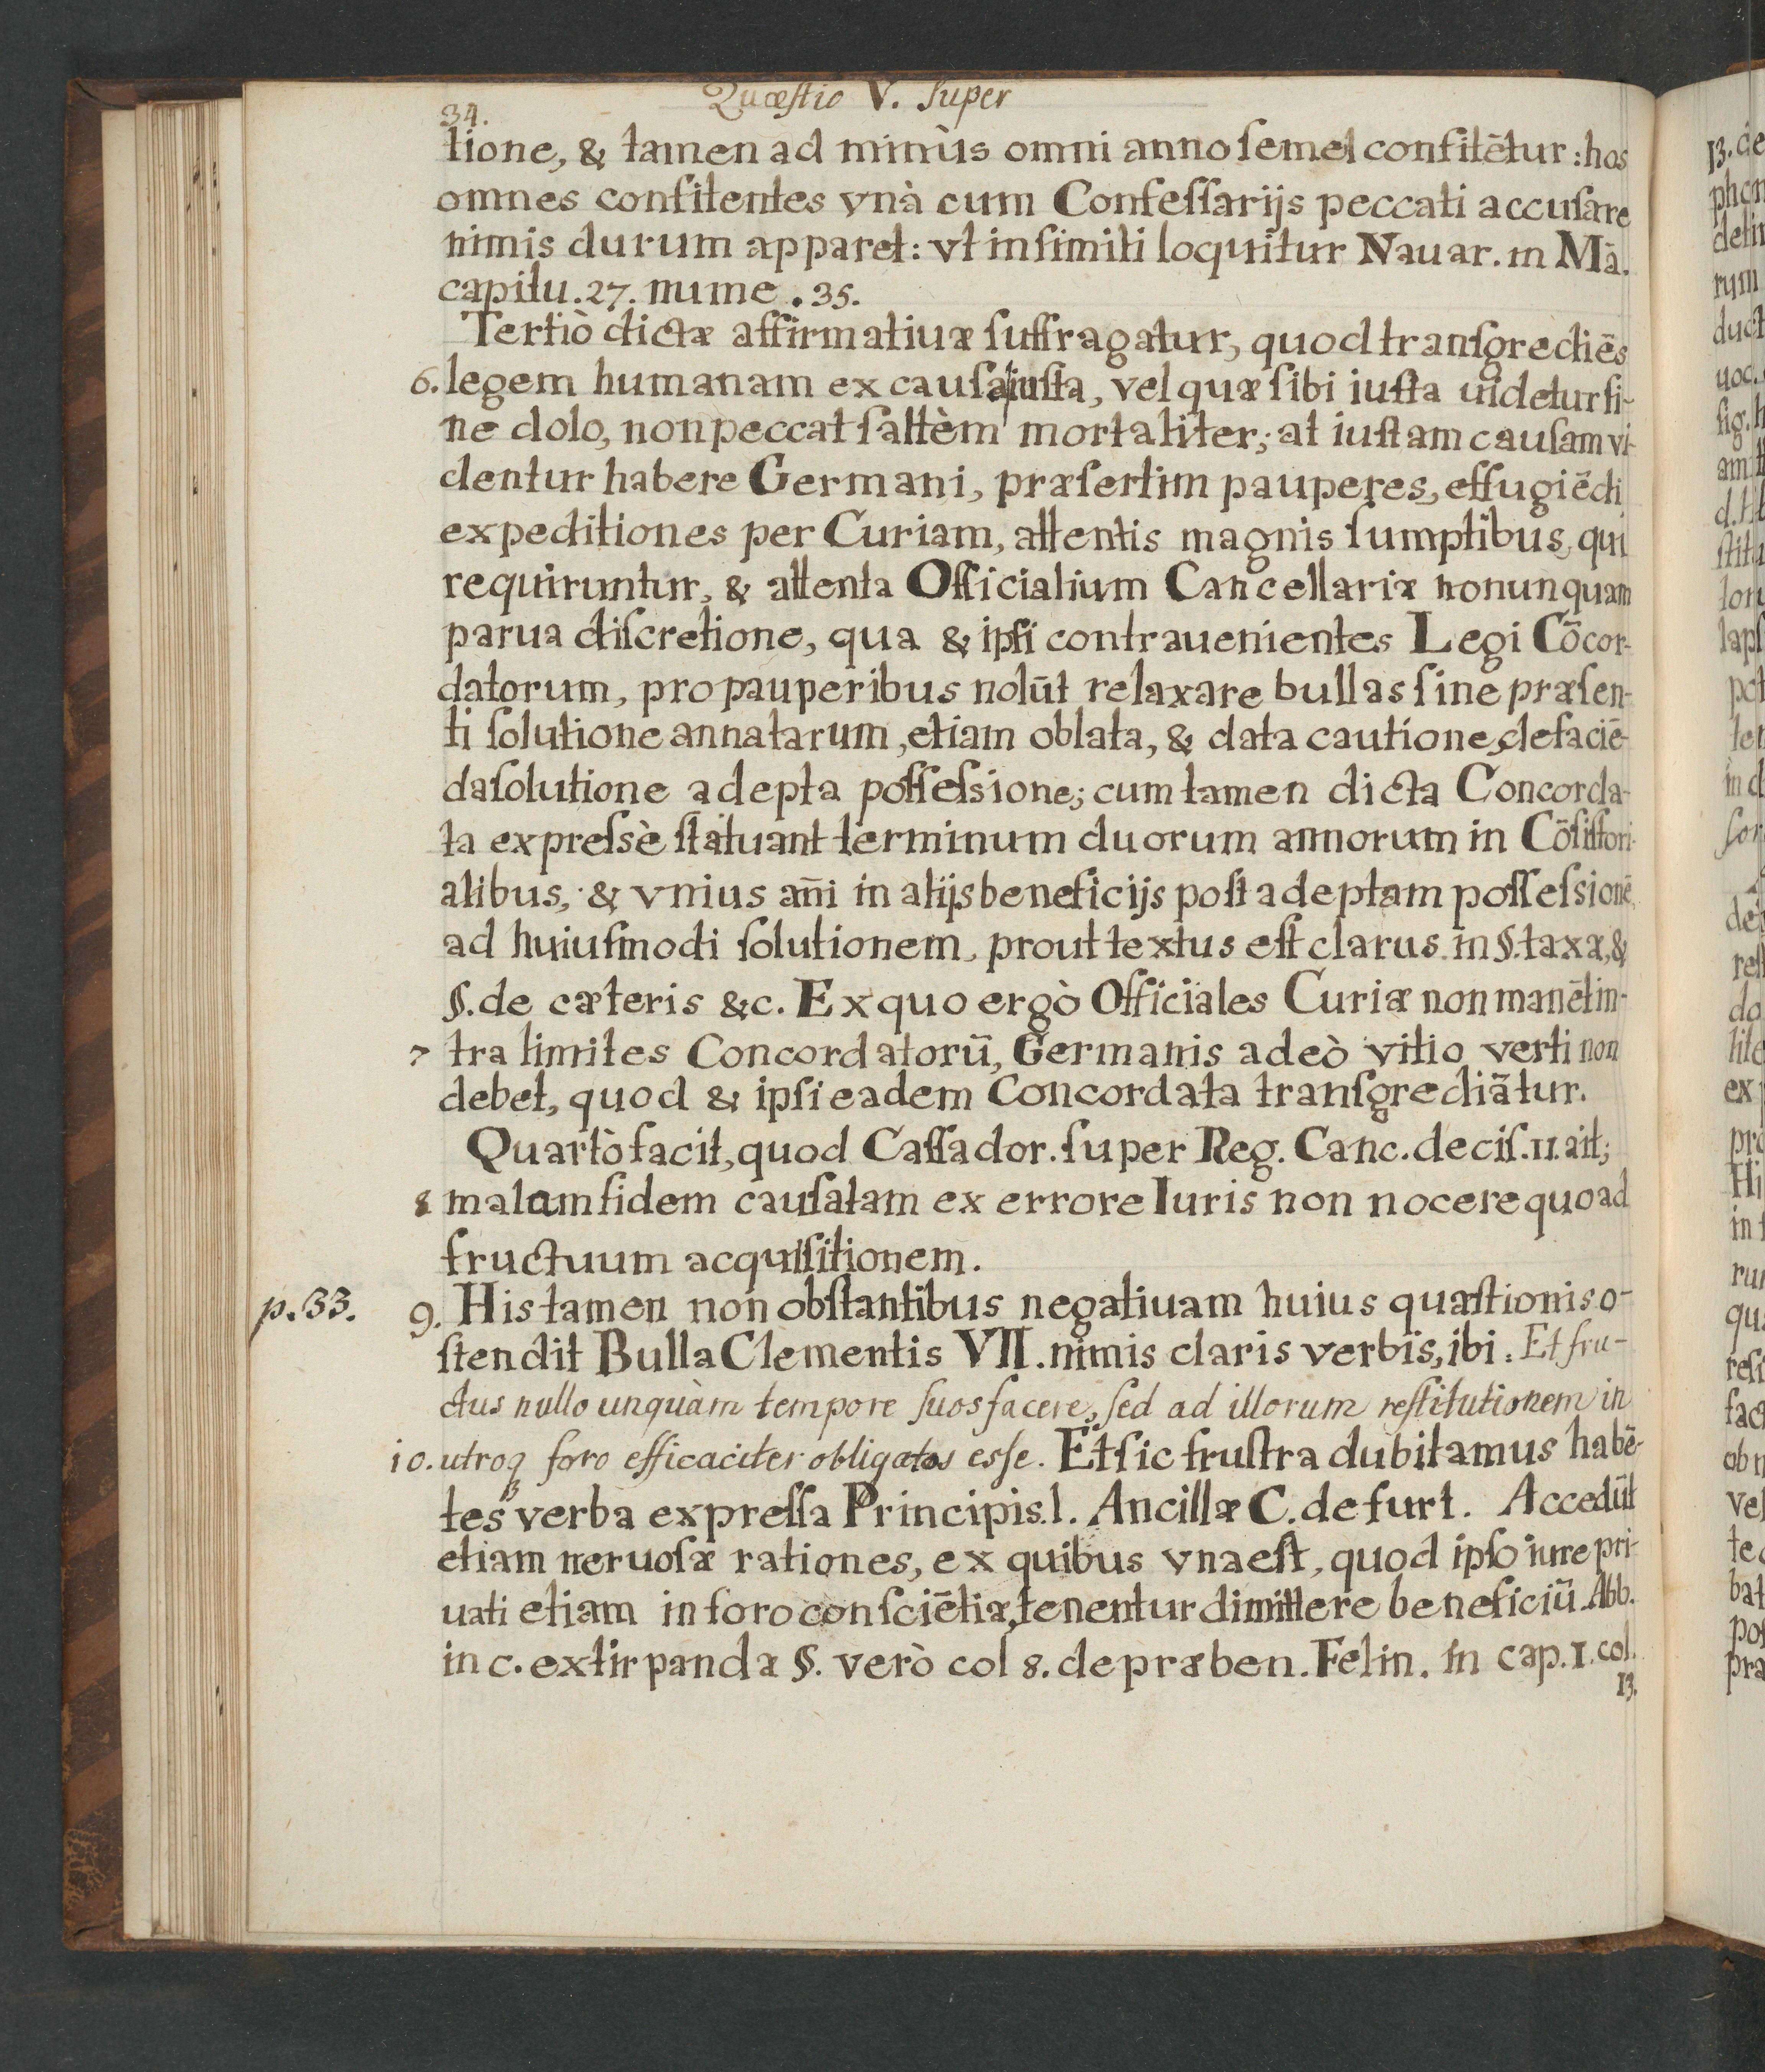 34. Quæſtio V. ſuper
tione, & tamen ad minùs omni anno ſemel confitētur: hos
omnes confitentes vnà cum Confeſſarijs peccati accuſare
nimis durum apparet: vt in ſimili loquitur Nauar. in Mā.
capitu. 27. nume. 35.
Tertiò dictæ affirmatiuæ ſuffragatur, quod tranſgrediēs
6. legem humanam ex cauſa iuſta, vel quæ ſibi iuſta uidetur ſi-
ne dolo, non peccat ſaltèm mortaliter; at iuſtam cauſam vi-
dentur habere Germani, præſertim pauperes, effugiēdi
expeditiones per Curiam, attentis magnis ſumptibus, qui
requiruntur, & attenta Officialium Cancellariæ nonunquam
parua diſcretione, qua & ipſi contrauenientes Legi Cōcor-
datorum, pro pauperibus nolūt relaxare bullas ſine præſen-
ti ſolutione annatarum, etiam oblata, & data cautione, de faciē-
da ſolutione adepta poſſeſsione; cum tamen dicta Concorda-
ta expreſsè ſtatuant terminum duorum annorum in Cōſiſtori-
alibus, & vnius an̄i in alijs beneficijs poſt adeptam poſſeſsionē,
ad huiuſmodi ſolutionem, prout textus eſt clarus. in §. taxæ, &
§. de cæteris &c. Ex quo ergò Officiales Curiæ non manēt in-
7 tra limites Concordatorū, Germanis adeò vitio verti non
debet, quod & ipſi eadem Concordata tranſgrediātur.
Quartò facit, quod Caſſador. ſuper Reg. Canc. deciſ. 11. ait;
8 malam fidem cauſatam ex errore Iuris non nocere quoad
fructuum acquiſitionem.
p. 33. 9. His tamen non obſtantibus negatiuam huius quæſtionis o-
ſtendit Bulla Clementis VII. nimis claris verbis, ibi: Et fru-
ctus nullo unquàm tempore ſuos facere, ſed ad illorum reſtitutionem in
10. utroq foro efficaciter obligatos eſſe. Et ſic fruſtra dubitamus habē-
tes verba expreſſa Principis. l. Ancillæ C. de furt. Accedūt
etiam neruoſæ rationes, ex quibus vna eſt, quod ipſo iure pri-
uati etiam in foro conſciētiæ, tenentur dimittere beneficiū. Abb.
in c. extirpandæ §. verò col 8. de præben. Felin. in cap. 1. col.
13.